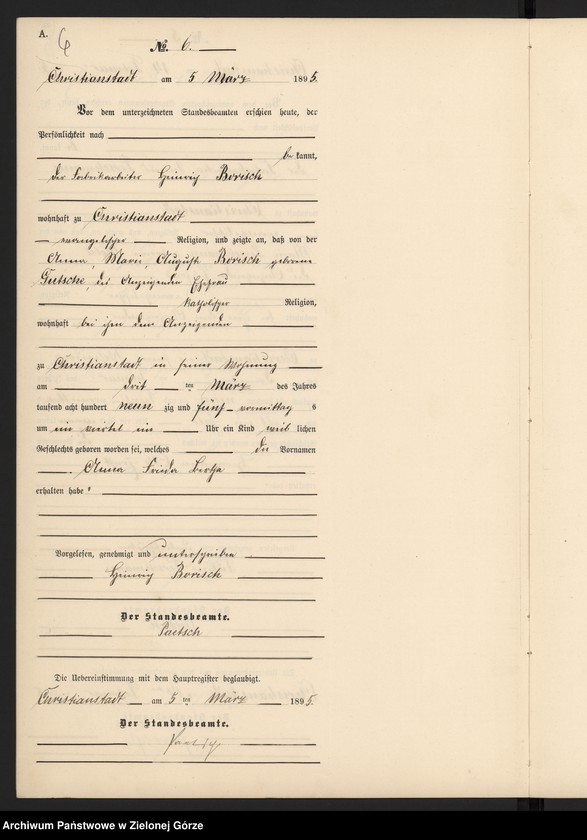 A.
6
No. 6.
Christianstadt am 5 März 1895.
Vor dem unterzeichneten Standesbeamten erschien heute, der
Persönlichkeit nach
bekannt,
der Fabrikarbeiter Heinrich Borisch
wohnhaft zu Christianstadt
evangelischer Religion, und zeigte an, daß von der
Anna, Marie, Auguste Borisch geborene
Gutsche, des Anzeigenden Ehefrau
katholischer Religion,
wohnhaft bei ihm dem Anzeigenden
zu Christianstadt in seiner Wohnung
am dritten März des Jahres
tausend acht hundert neunzig und fünf vormittags
um ein viertel ein Uhr ein Kind weiblichen
Geschlechts geboren worden sei, welches die Vornamen
Anna Frieda Bertha
erhalten habe
Vorgelesen, genehmigt und unterschrieben
Heinrich Borisch
Der Standesbeamte.
Paetsch
Die Uebereinstimmung mit dem Hauptregister beglaubigt.
Christianstadt am 5ten März 1895.
Der Standesbeamte.
Paetsch
Archiwum Państwowe w Zielonej Górze